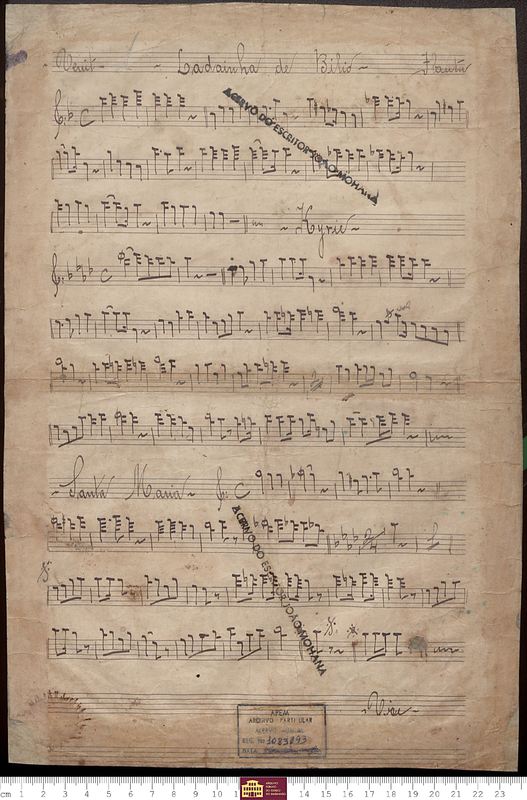 Venit - Ladainha de Bibió - Flauta
ACERVO DO ESCRITOR JOÃO MOHANA
- Kyrie -
- Santa Maria -
ACERVO DO ESCRITOR JOÃO MOHANA
APEM
ARQUIVO PARTICULAR
REG. No 1083/93
DATA
cm 1 2 3 4 5 6 7 8 9 10 11 14 15 16 17 18 19 20 21 22 23